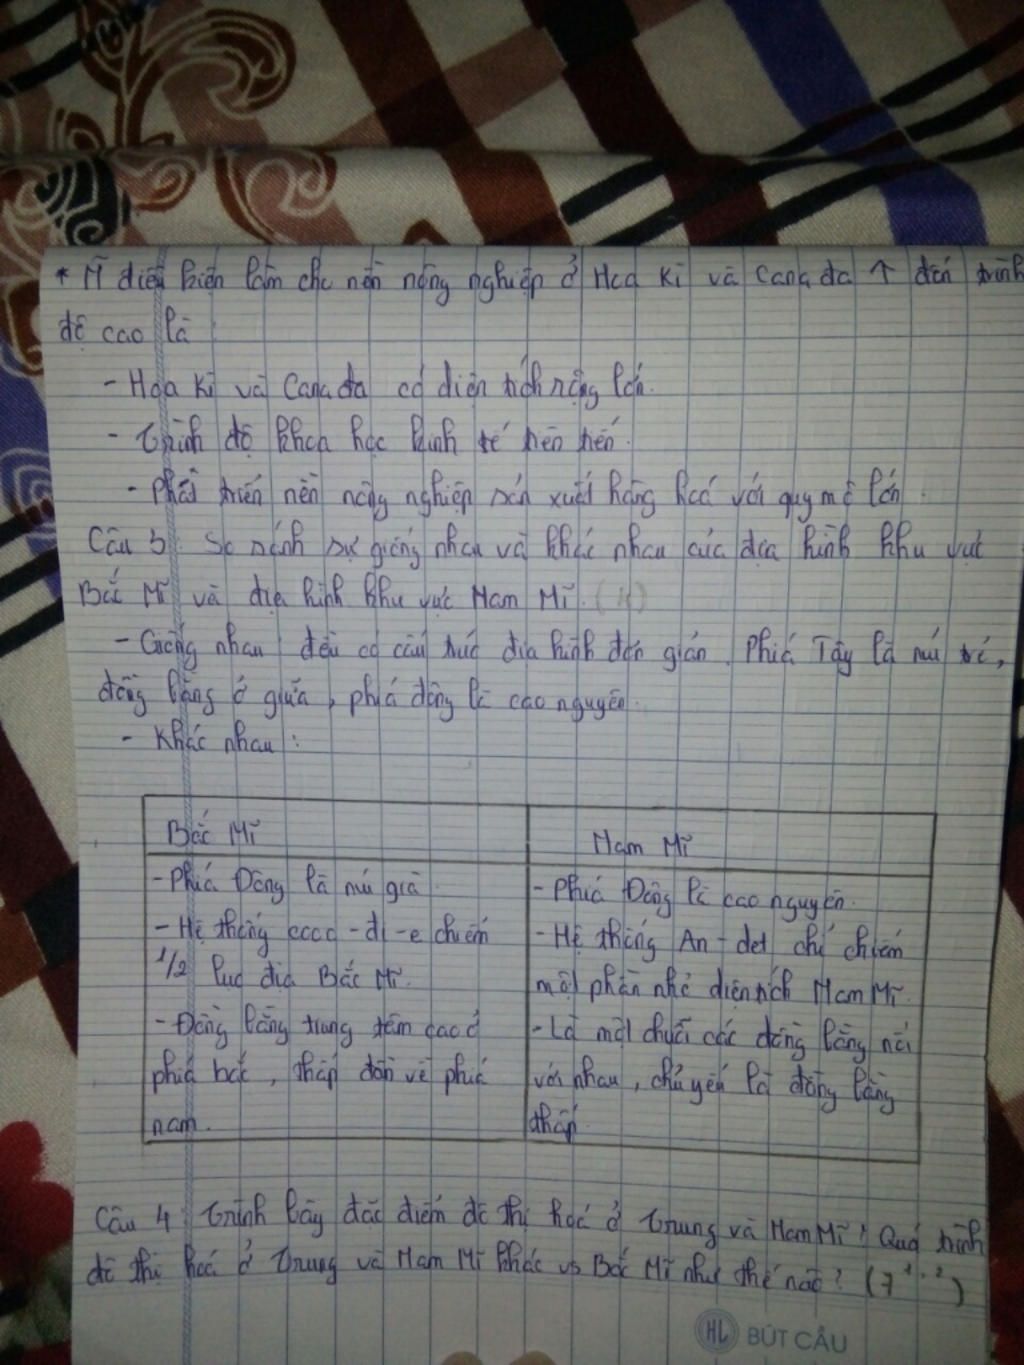 * Những điều kiện làm cho nền nông nghiệp ở Hoa Kì và Canada ↑ đến trình
độ cao là
- Hoa Kì và Canada có diện tích nông lớn.
- Trình độ khoa học kinh tế tiên tiến.
- Phát triển nền nông nghiệp sản xuất hàng hoá với quy mô lớn.
Câu 3: So sánh sự giống nhau và khác nhau của địa hình khu vực
Bắc Mĩ và địa hình khu vực Nam Mĩ.
- Giống nhau: đều có cấu trúc địa hình đơn giản. Phía Tây là núi trẻ,
đồng bằng ở giữa, phía đông là cao nguyên.
- Khác nhau:
Bắc Mĩ
Nam Mĩ
- Phía Đông là núi già
- Hệ thống cooc-đi-e chiếm
1/2 lục địa Bắc Mĩ.
- Đồng bằng trung tâm cao ở
phía bắc, thấp dần về phía
nam.
- Phía Đông là cao nguyên.
- Hệ thống An-det chỉ chiếm
một phần nhỏ diện tích Nam Mĩ.
- Là một chuỗi các đồng bằng nối
với nhau, chủ yếu là đồng bằng
thấp.
Câu 4: Trình bày đặc điểm đô thị hoá ở Trung và Nam Mĩ? Quá trình
đô thị hoá ở Trung và Nam Mĩ khác vs Bắc Mĩ như thế nào?
HL BÚT CẦU